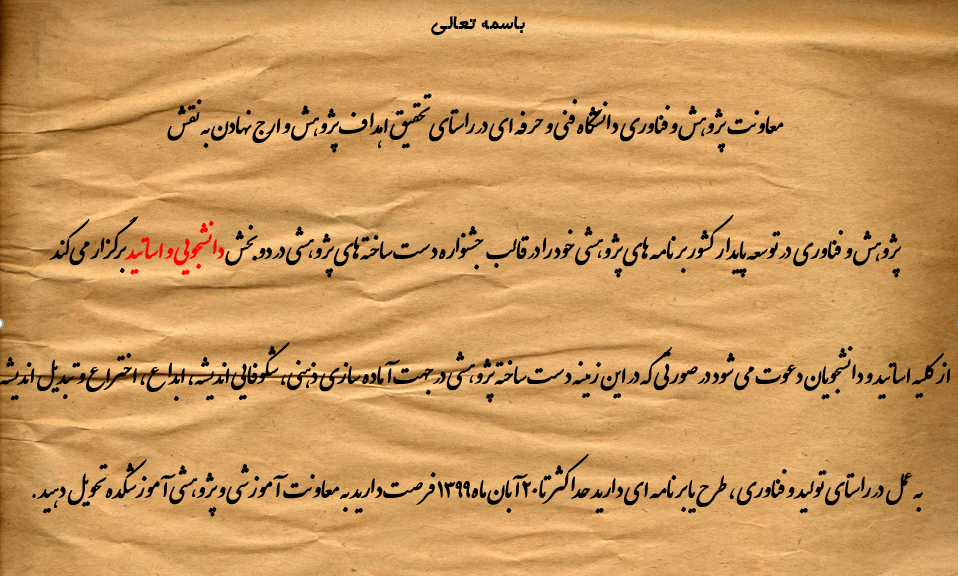 باسمه تعالی
معاونت پژوهش و فناوری دانشگاه فنی و حرفه ای در راستای تحقیق اهداف پژوهش و ارج نهادن به نقش
پژوهش و فناوری در توسعه پایدار کشور برنامه های پژوهشی خود را در قالب جشنواره دست ساخته های پژوهشی در دو بخش دانشجویی و اساتید برگزار می کند
از کلیه اساتید و دانشجویان دعوت می شود در صورتی که در این زمینه دست ساخته پژوهشی در جهت آماده سازی ذهنی، شکوفایی اندیشه، ابداع، اختراع و تبدیل اندیشه
به عمل در راستای تولید و فناوری، طرح یا برنامه ای دارید حداکثر تا ۲۰ آبان ماه ۱۳۹۹ فرصت دارید به معاونت آموزشی و پژوهشی آموزشکده تحویل دهید.